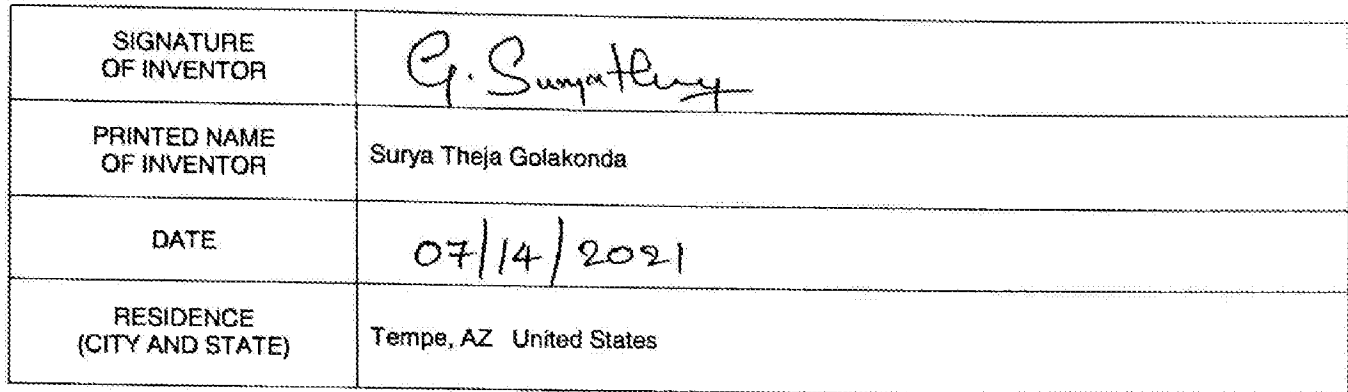 SIGNATURE
OF INVENTOR
G. Suryatheja
PRINTED NAME
OF INVENTOR
Surya Theja Golakonda
DATE
07/14/2021
RESIDENCE
(CITY AND STATE)
Tempe, AZ United States